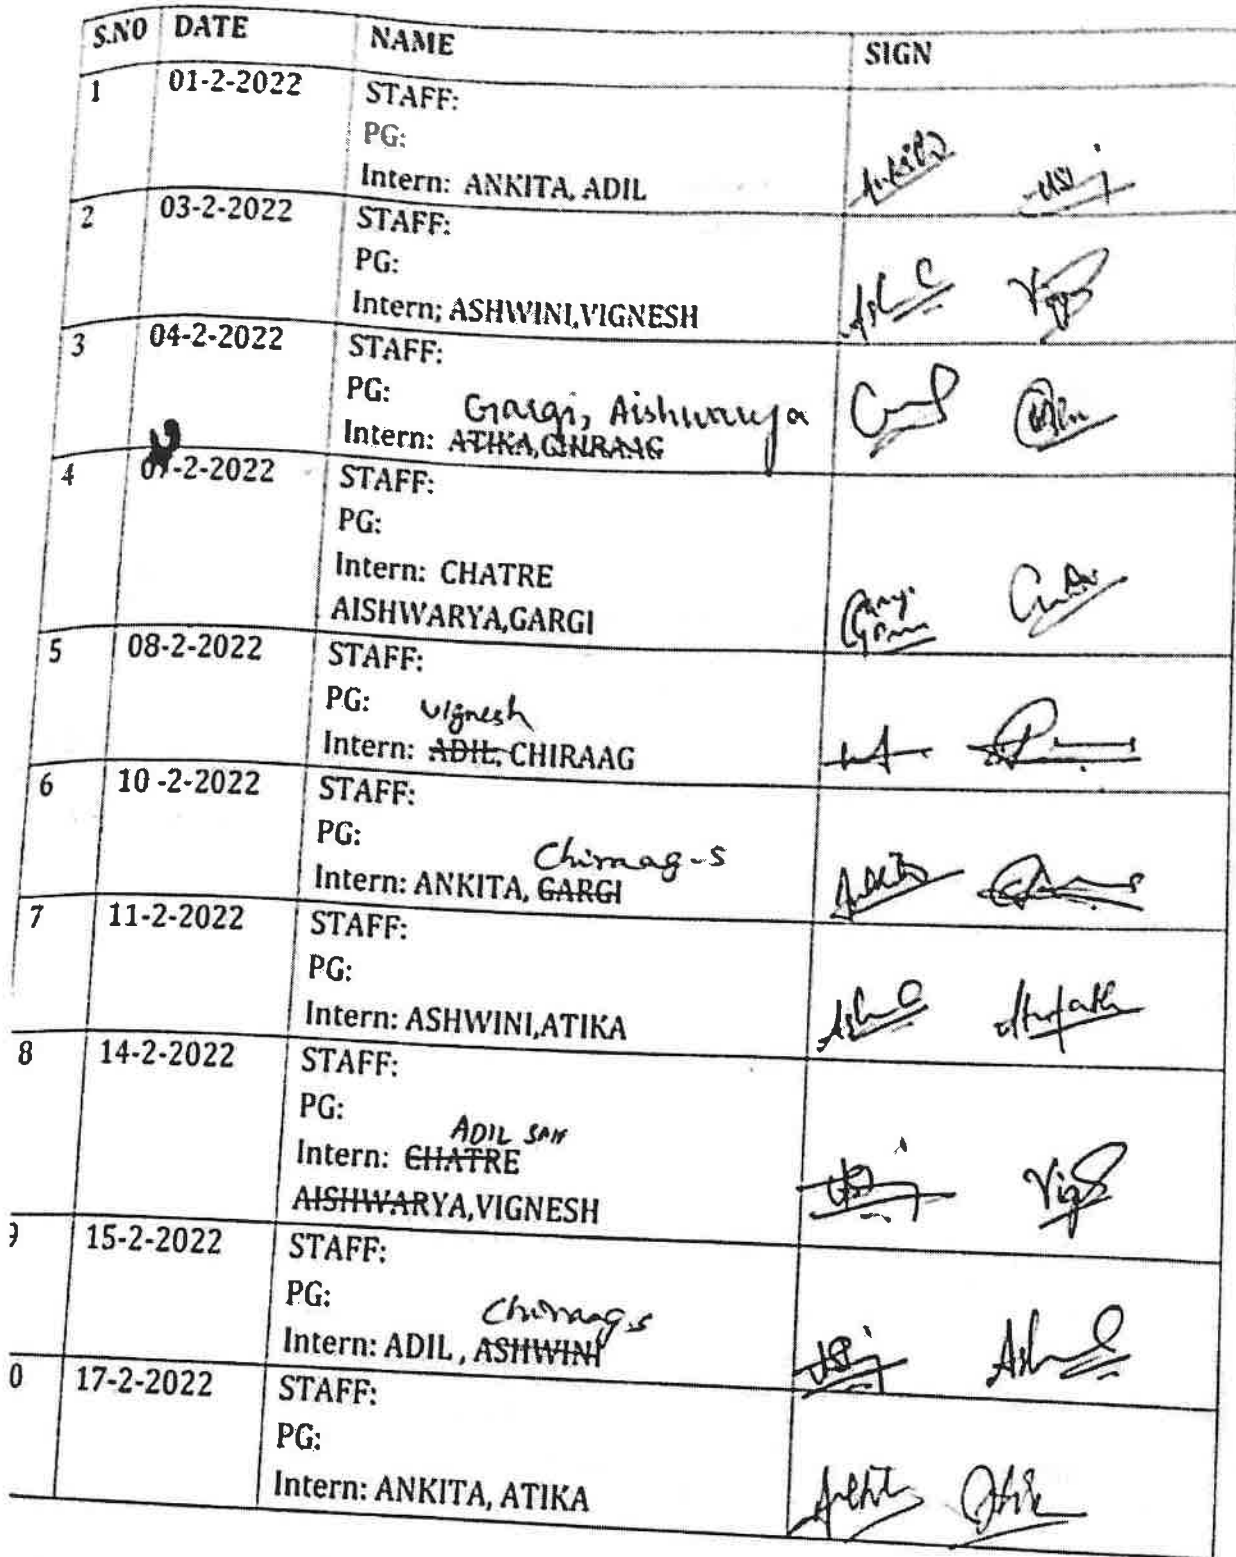 S.NO DATE NAME SIGN
1 01-2-2022 STAFF:
PG:
Intern: ANKITA, ADIL
2 03-2-2022 STAFF:
PG:
Intern: ASHWINI,VIGNESH
3 04-2-2022 STAFF:
PG:
Gargi, Aishwarya
Intern: ATIKA,CHIRAAG
4 07-2-2022 STAFF:
PG:
Intern: CHATRE
AISHWARYA,GARGI
5 08-2-2022 STAFF:
PG:
Vignesh
Intern: ADIL, CHIRAAG
6 10 -2-2022 STAFF:
PG:
Chiraag-S
Intern: ANKITA, GARGI
7 11-2-2022 STAFF:
PG:
Intern: ASHWINI,ATIKA
8 14-2-2022 STAFF:
PG:
ADIL
Intern: CHATRE
AISHWARYA,VIGNESH
9 15-2-2022 STAFF:
PG:
Chiraag S
Intern: ADIL , ASHWINI
0 17-2-2022 STAFF:
PG:
Intern: ANKITA, ATIKA